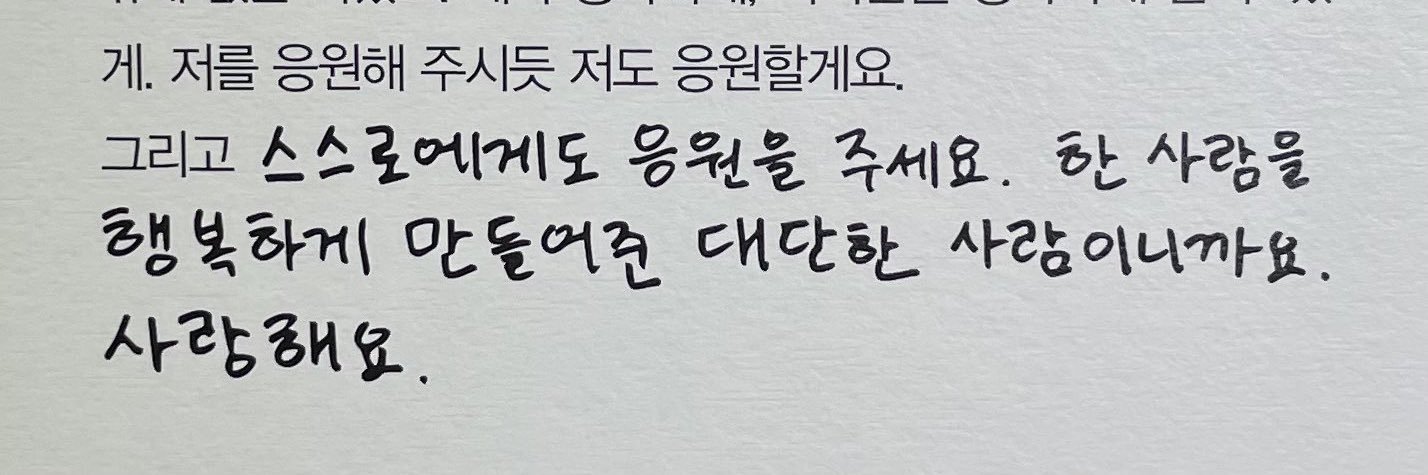 게. 저를 응원해 주시듯 저도 응원할게요.
그리고 스스로에게도 응원을 주세요. 한 사람을
행복하게 만들어준 대단한 사람이니까요.
사랑해요.